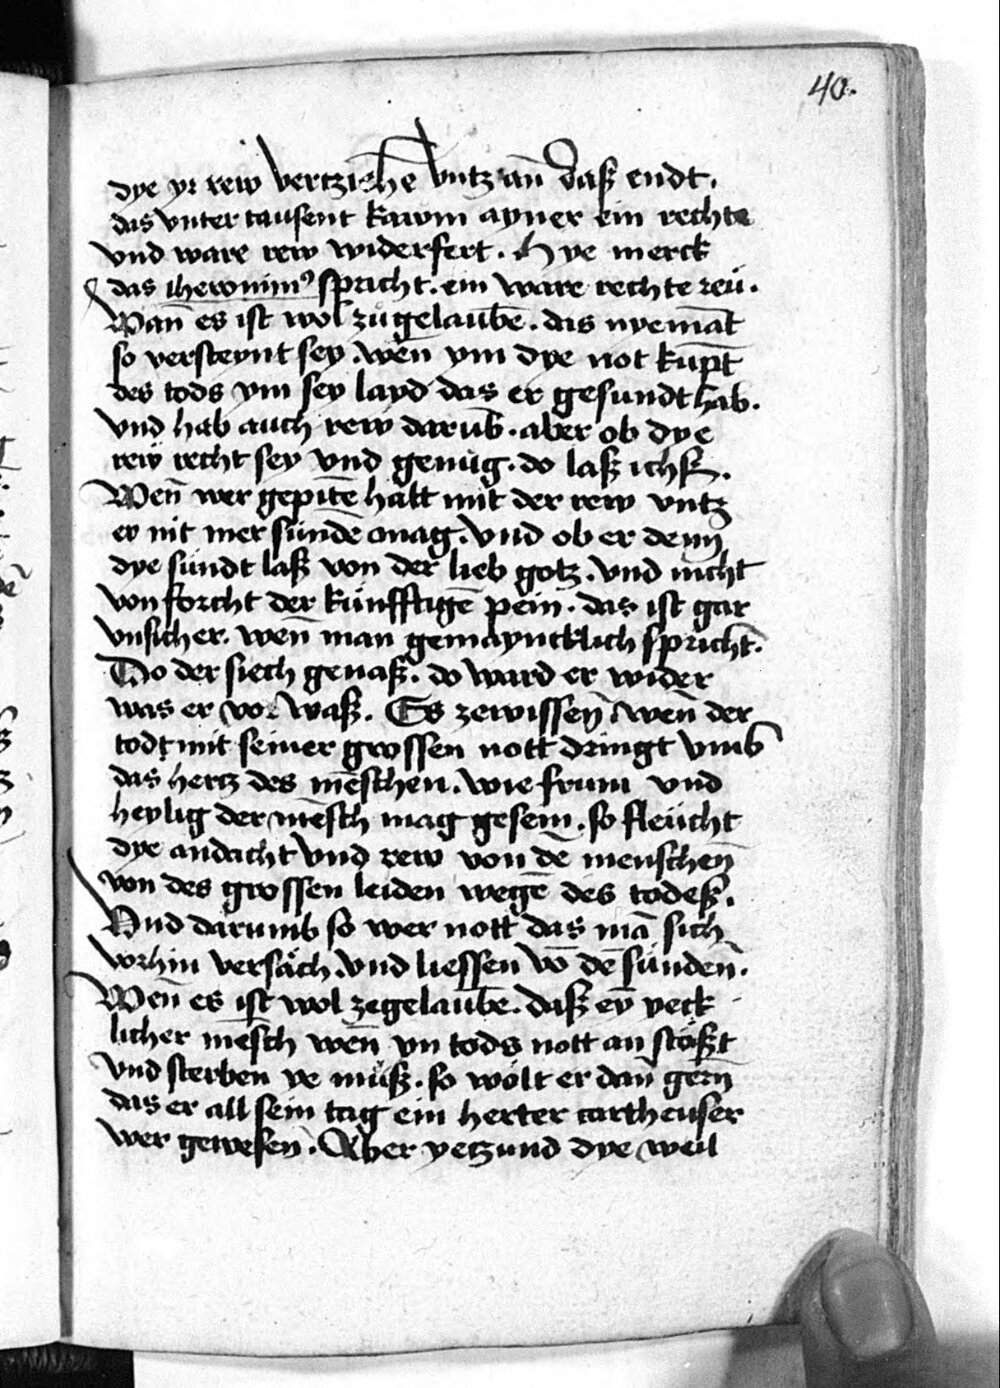 40.
dye yr rew vertziehē vntz an̄ daß endt.
das vnter tausent kawm ayner ein rechte
vnd ware rew widerfert. Hye merck
das iheronimꝰ spricht. ein ware rechte reü.
Wan̄ es ist wol zugelaubē. das nyemāt
so versteynt sey. wen̄ ym dye not kūpt
des tods ym sey layd das er gesundt hab.
vnd hab auch rew darūb. aber ob dye
rew recht sey vnd genüg. do laß ichß.
Wen̄ wer gepitē halt mit der rew vntz
er nit mer sündē mag. vnd ob er denn
dye sündt laß von der lieb gotz. vnd nicht
von forcht der künfftigē pein. das ist gar
vnsicher. wen̄ man gemaynicklich spricht.
Do der siech genaß. do ward er wider
was er vor waß. Es zewissen wen̄ der
todt mit seiner grossen nott dringt vmb
das hertz des mēschen. wie frum vnd
heylig der mēsch mag gesein. so fleücht
dye andacht vnd rew von dē menschen
von des grossen leiden wegē des todeß.
Vnd darumb so wer nott das mā sich
vorhin versäch. vnd liessen vō dē sünden.
Wen̄ es ist wol zegelaubē. daß eȳ yeck
licher mēsch wen̄ yn tods nott an stößt
vnd sterben ye müß. so wölt er dan̄ gern
das er all sein tag ein herter cartheuser
wer gewesen. Aber yetzund dye weil